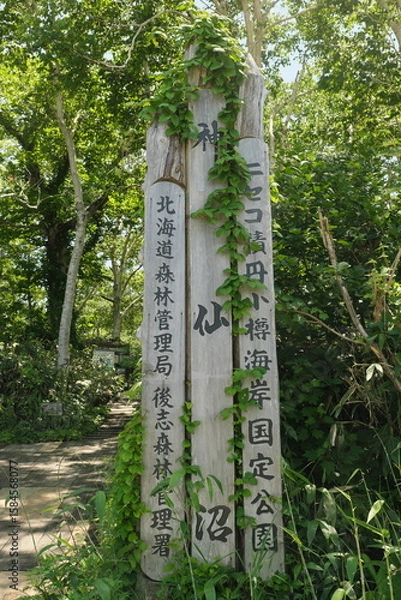 ニセコ積丹小樽海岸国定公園
神仙沼
北海道森林管理局 後志森林管理署
Adobe Stock | #1584568077